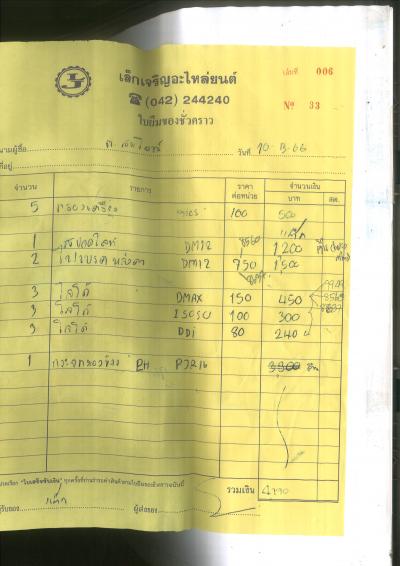 เล่มที่ 006
เล็กเจริญอะไหล่ยนต์
☎ (042) 244240
ใบยืมของชั่วคราว
Nº 33
นามผู้ซื้อ
วันที่ 10-3-66
ที่อยู่
จำนวน รายการ ราคาต่อหน่วย จำนวนเงิน บาท สต.
5 กรองเครื่อง 100 500
1 DM12 1200
2 DM12 750 1500
3 โลโก้ DMAX 150 450
3 โลโก้ ISUZU 100 300
3 โลโก้ DDi 80 240
1 กระจกมองข้าง RH 3300
"ใบเสร็จรับเงิน" ทุกครั้งที่ท่านชำระค่าสินค้าตามใบยืมของชั่วคราวฉบับนี้
รวมเงิน 4190
ผู้รับของ ผู้ส่งของ